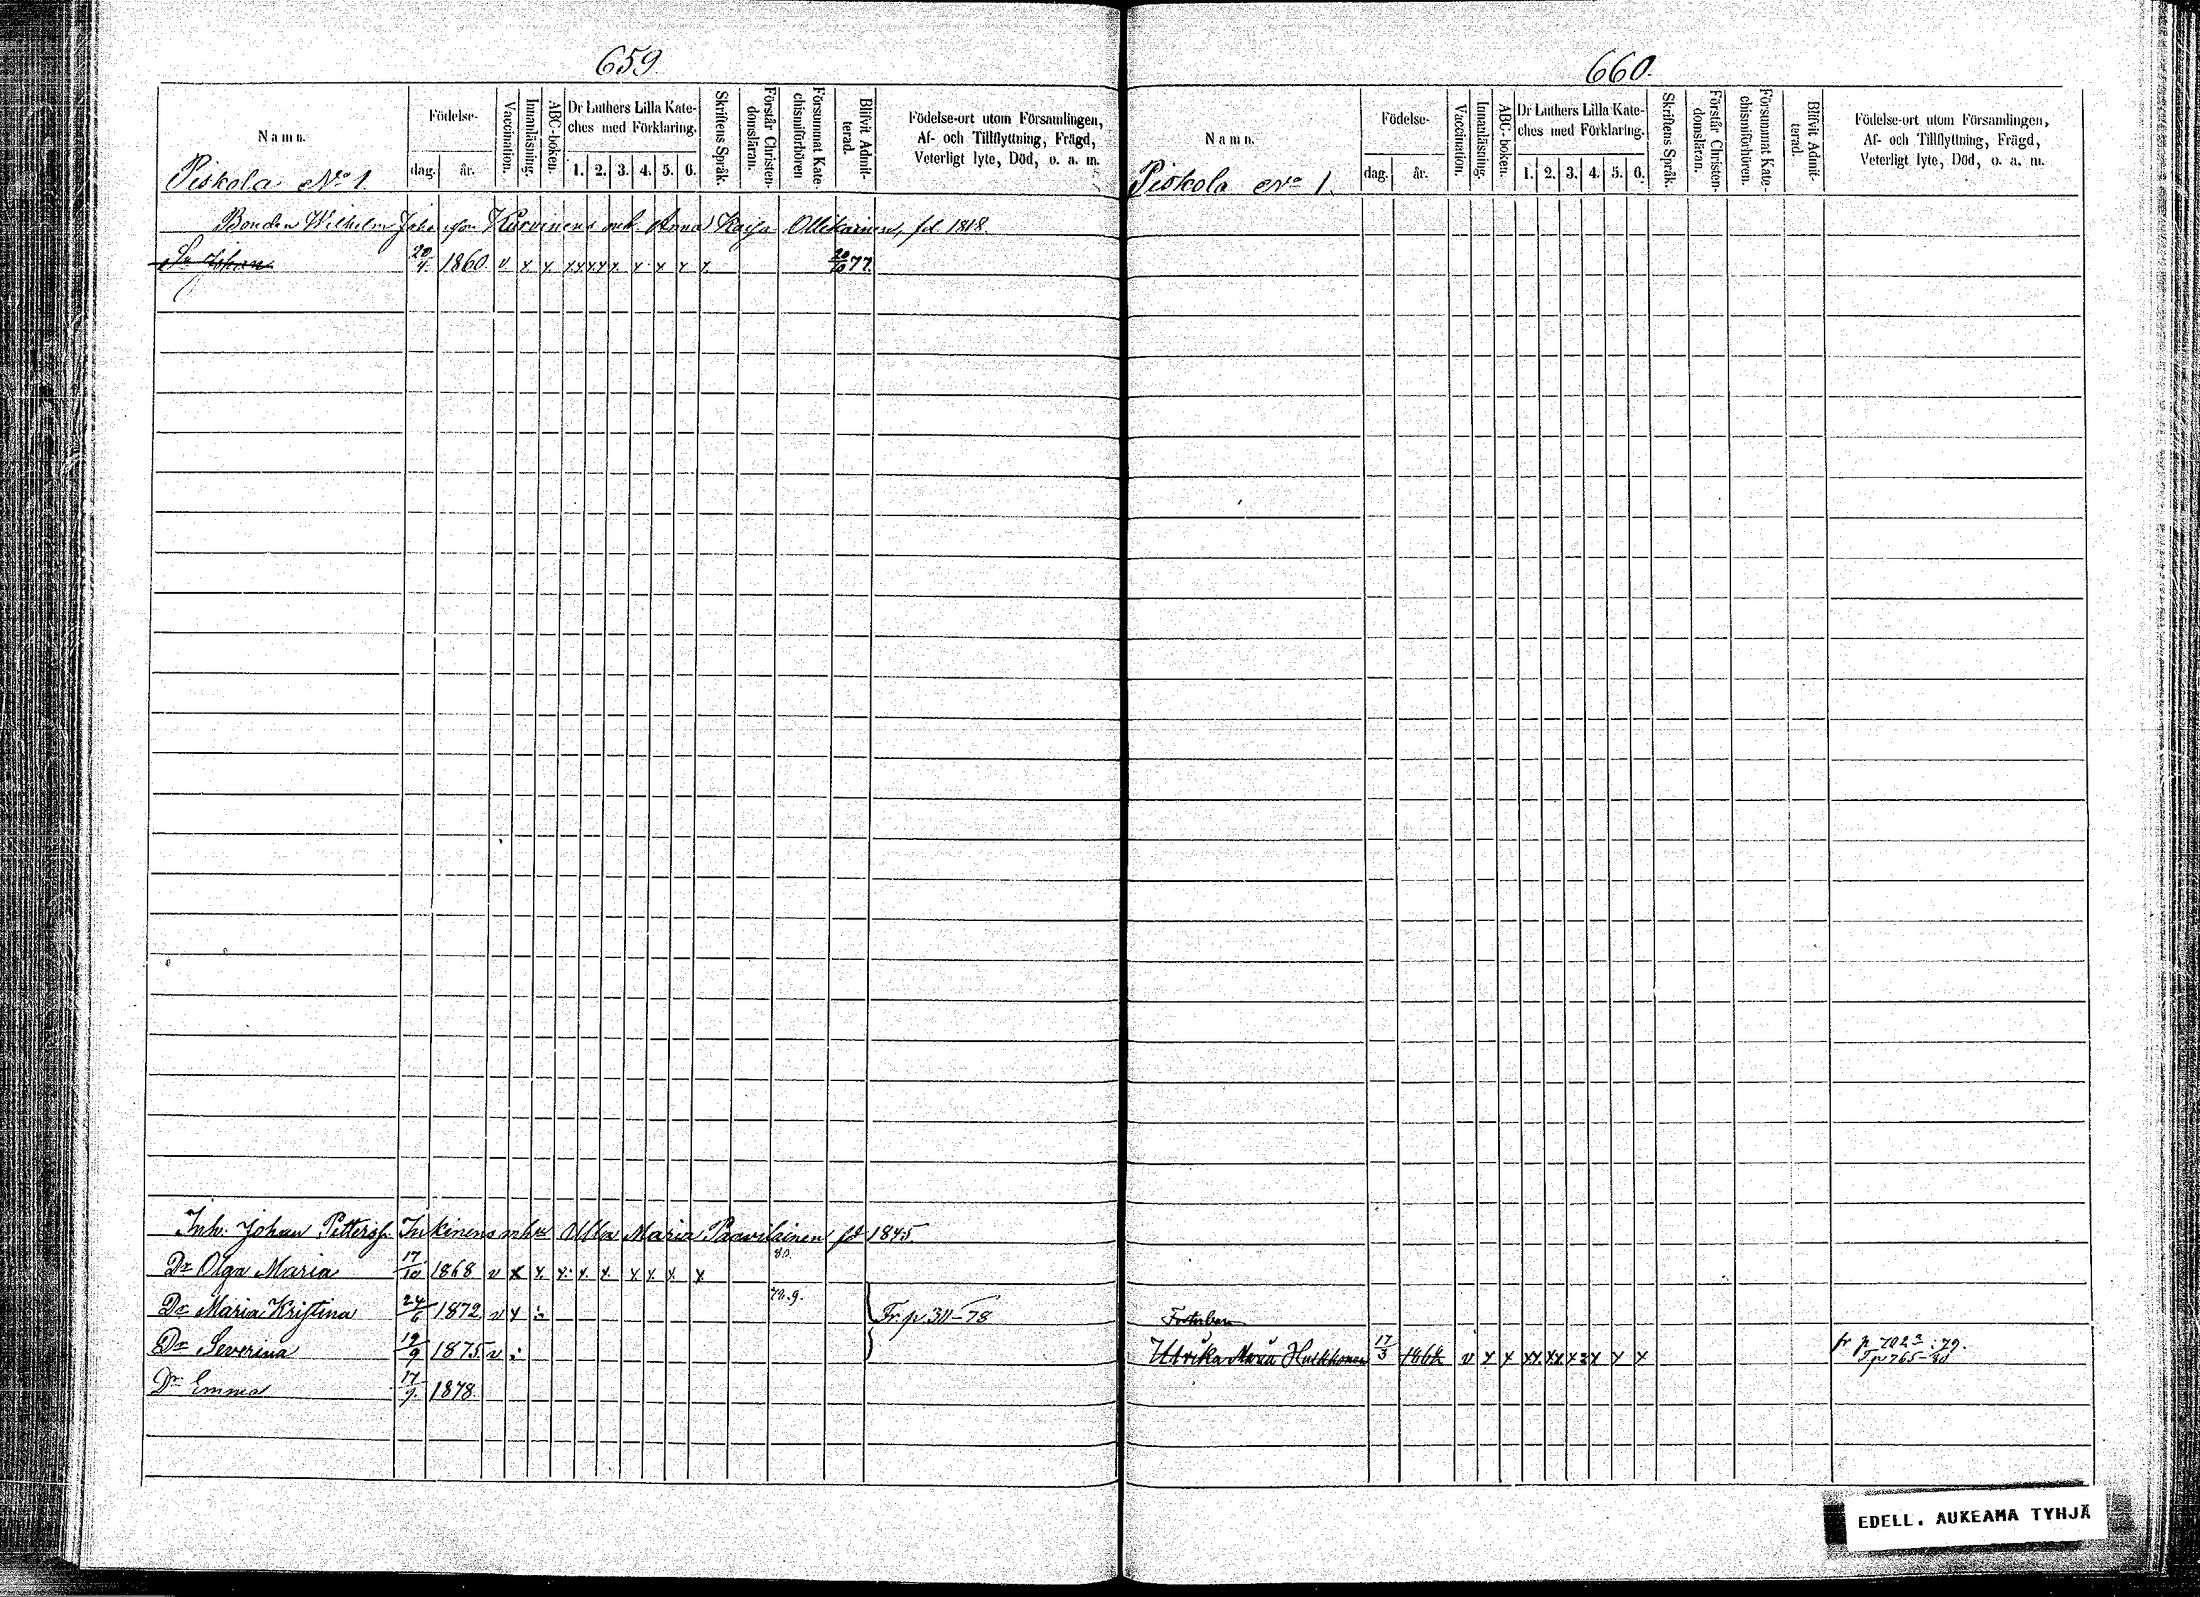 659
Namn.
Födelse-
dag.
år.
Vaccination.
Innanläsning.
ABC-boken.
Dr Luthers Lilla Kate-
ches med Förklaring.
1. 2. 3. 4. 5. 6.
Skriftens Språk.
Förstår Christen-
domsläran.
Försummat Kate-
chismiförhören
Blifvit Admit-
terad.
Födelse-ort utom Församlingen,
Af- och Tillflyttning, Frägd,
Veterligt lyte, Död, o. a. m.
Piskola No 1.
Bonden Wilhelm Kurvinens Anna Kaisa Ollikainen, fd 1818.
Sn Johan 20/4 1860 v x x x x x x x x x x x 20/10 77.
Inh. Johan Petterss. Inkinens mhu Ulla Maria Paavilainen fd 1845
80.
Dr Olga Maria 17/10 1868 v x x x x x x x x x
78.9.
Dr Maria Kristina 24/6 1872 v x Fr. p 311-78
Dr Severina 19/9 1875 v
Dr Emma 17/9 1878
660.
Namn.
Födelse-
dag.
år.
Vaccination.
Innanläsning.
ABC-boken.
Dr Luthers Lilla Kate-
ches med Förklaring.
1. 2. 3. 4. 5. 6.
Skriftens Språk.
Förstår Christen-
domsläran.
Försummat Kate-
chismiförhören.
Blifvit Admit-
terad.
Födelse-ort utom Församlingen,
Af- och Tillflyttning, Frägd,
Veterligt lyte, Död, o. a. m.
Piskola No 1.
Fosterbarn
Ulrika Maria 17/3 v x x x x x x x x x x fr p 702 :79.
T p 765-80
EDELL. AUKEAMA TYHJÄ